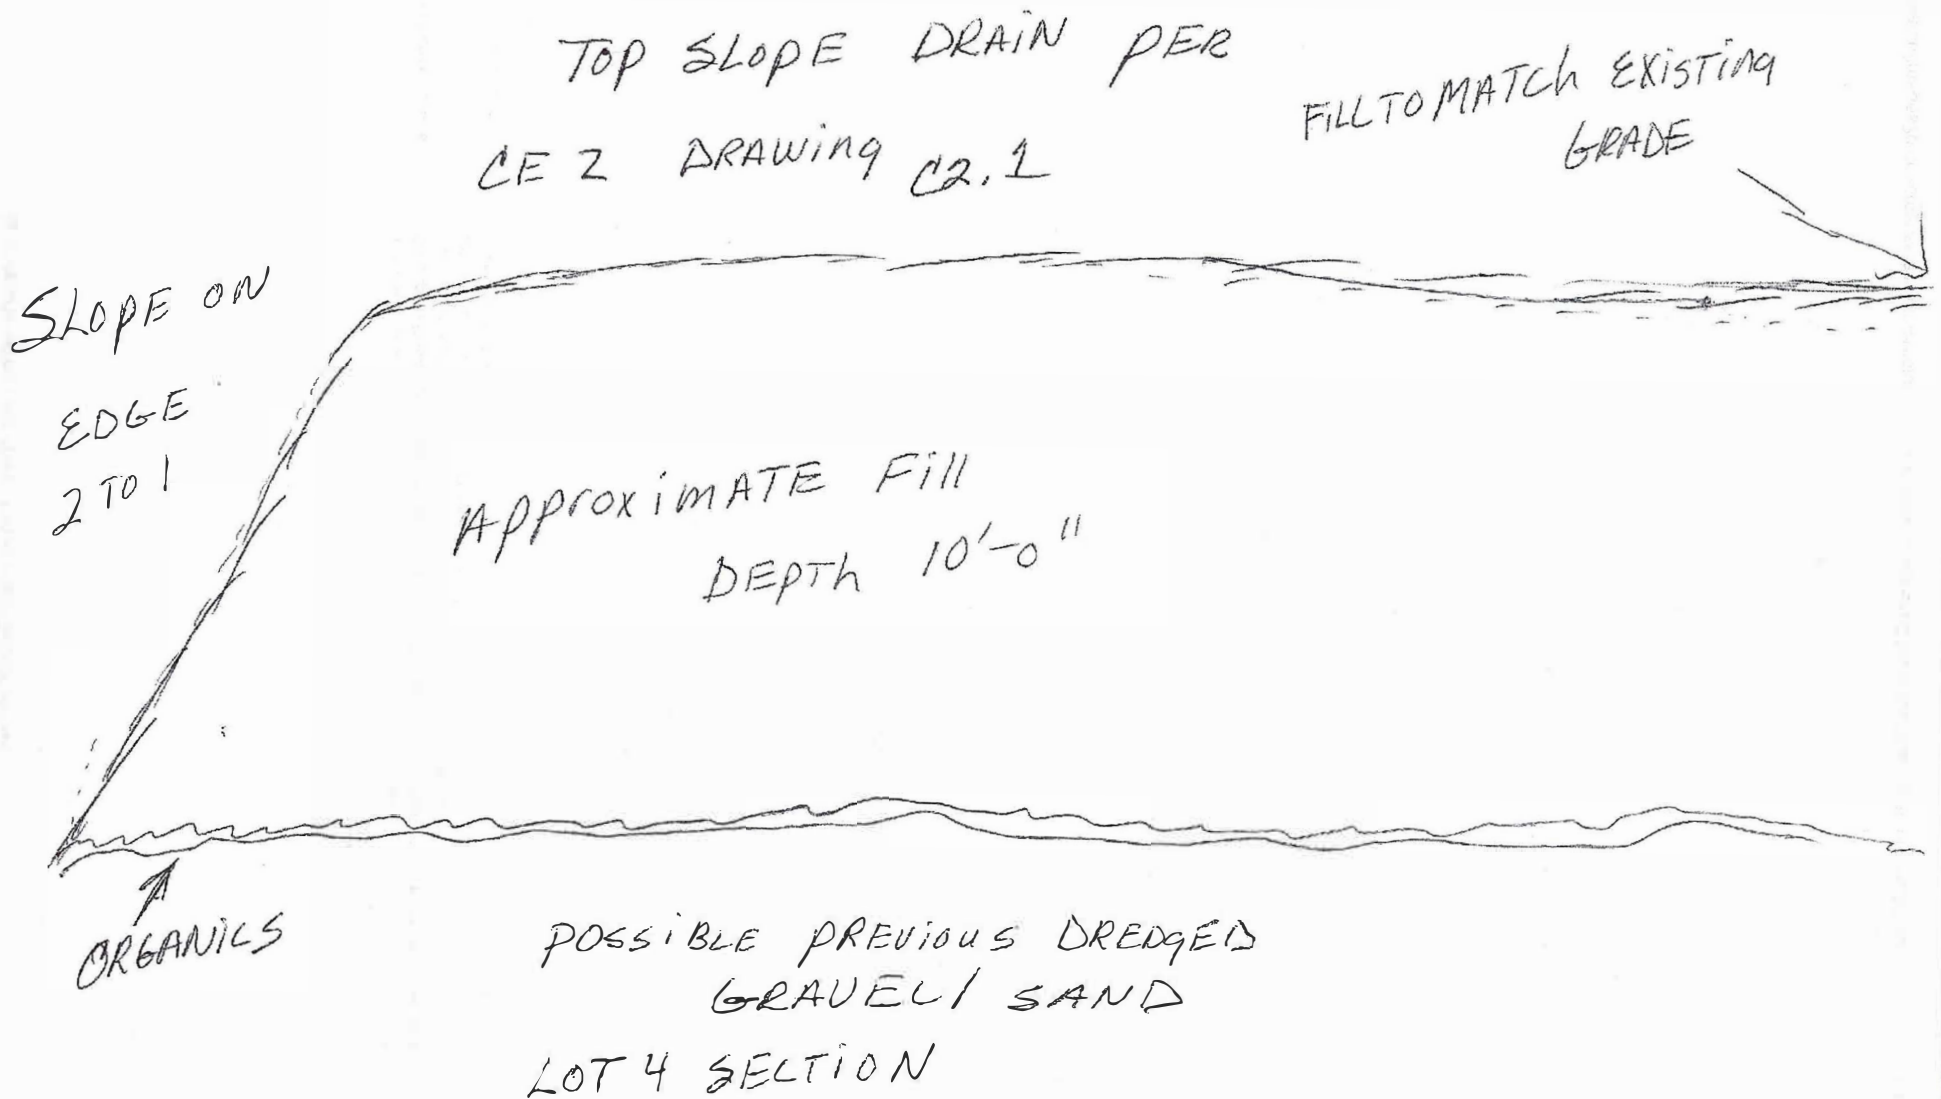 TOP SLOPE DRAIN PER
CE 2 DRAWING C2.1
FILL TO MATCH EXISTING
GRADE
SLOPE ON
EDGE
2 TO 1
APPROXIMATE Fill
DEPTH 10'-0"
ORGANICS
POSSIBLE PREVIOUS DREDGED
GRAVEL/ SAND
LOT 4 SECTION